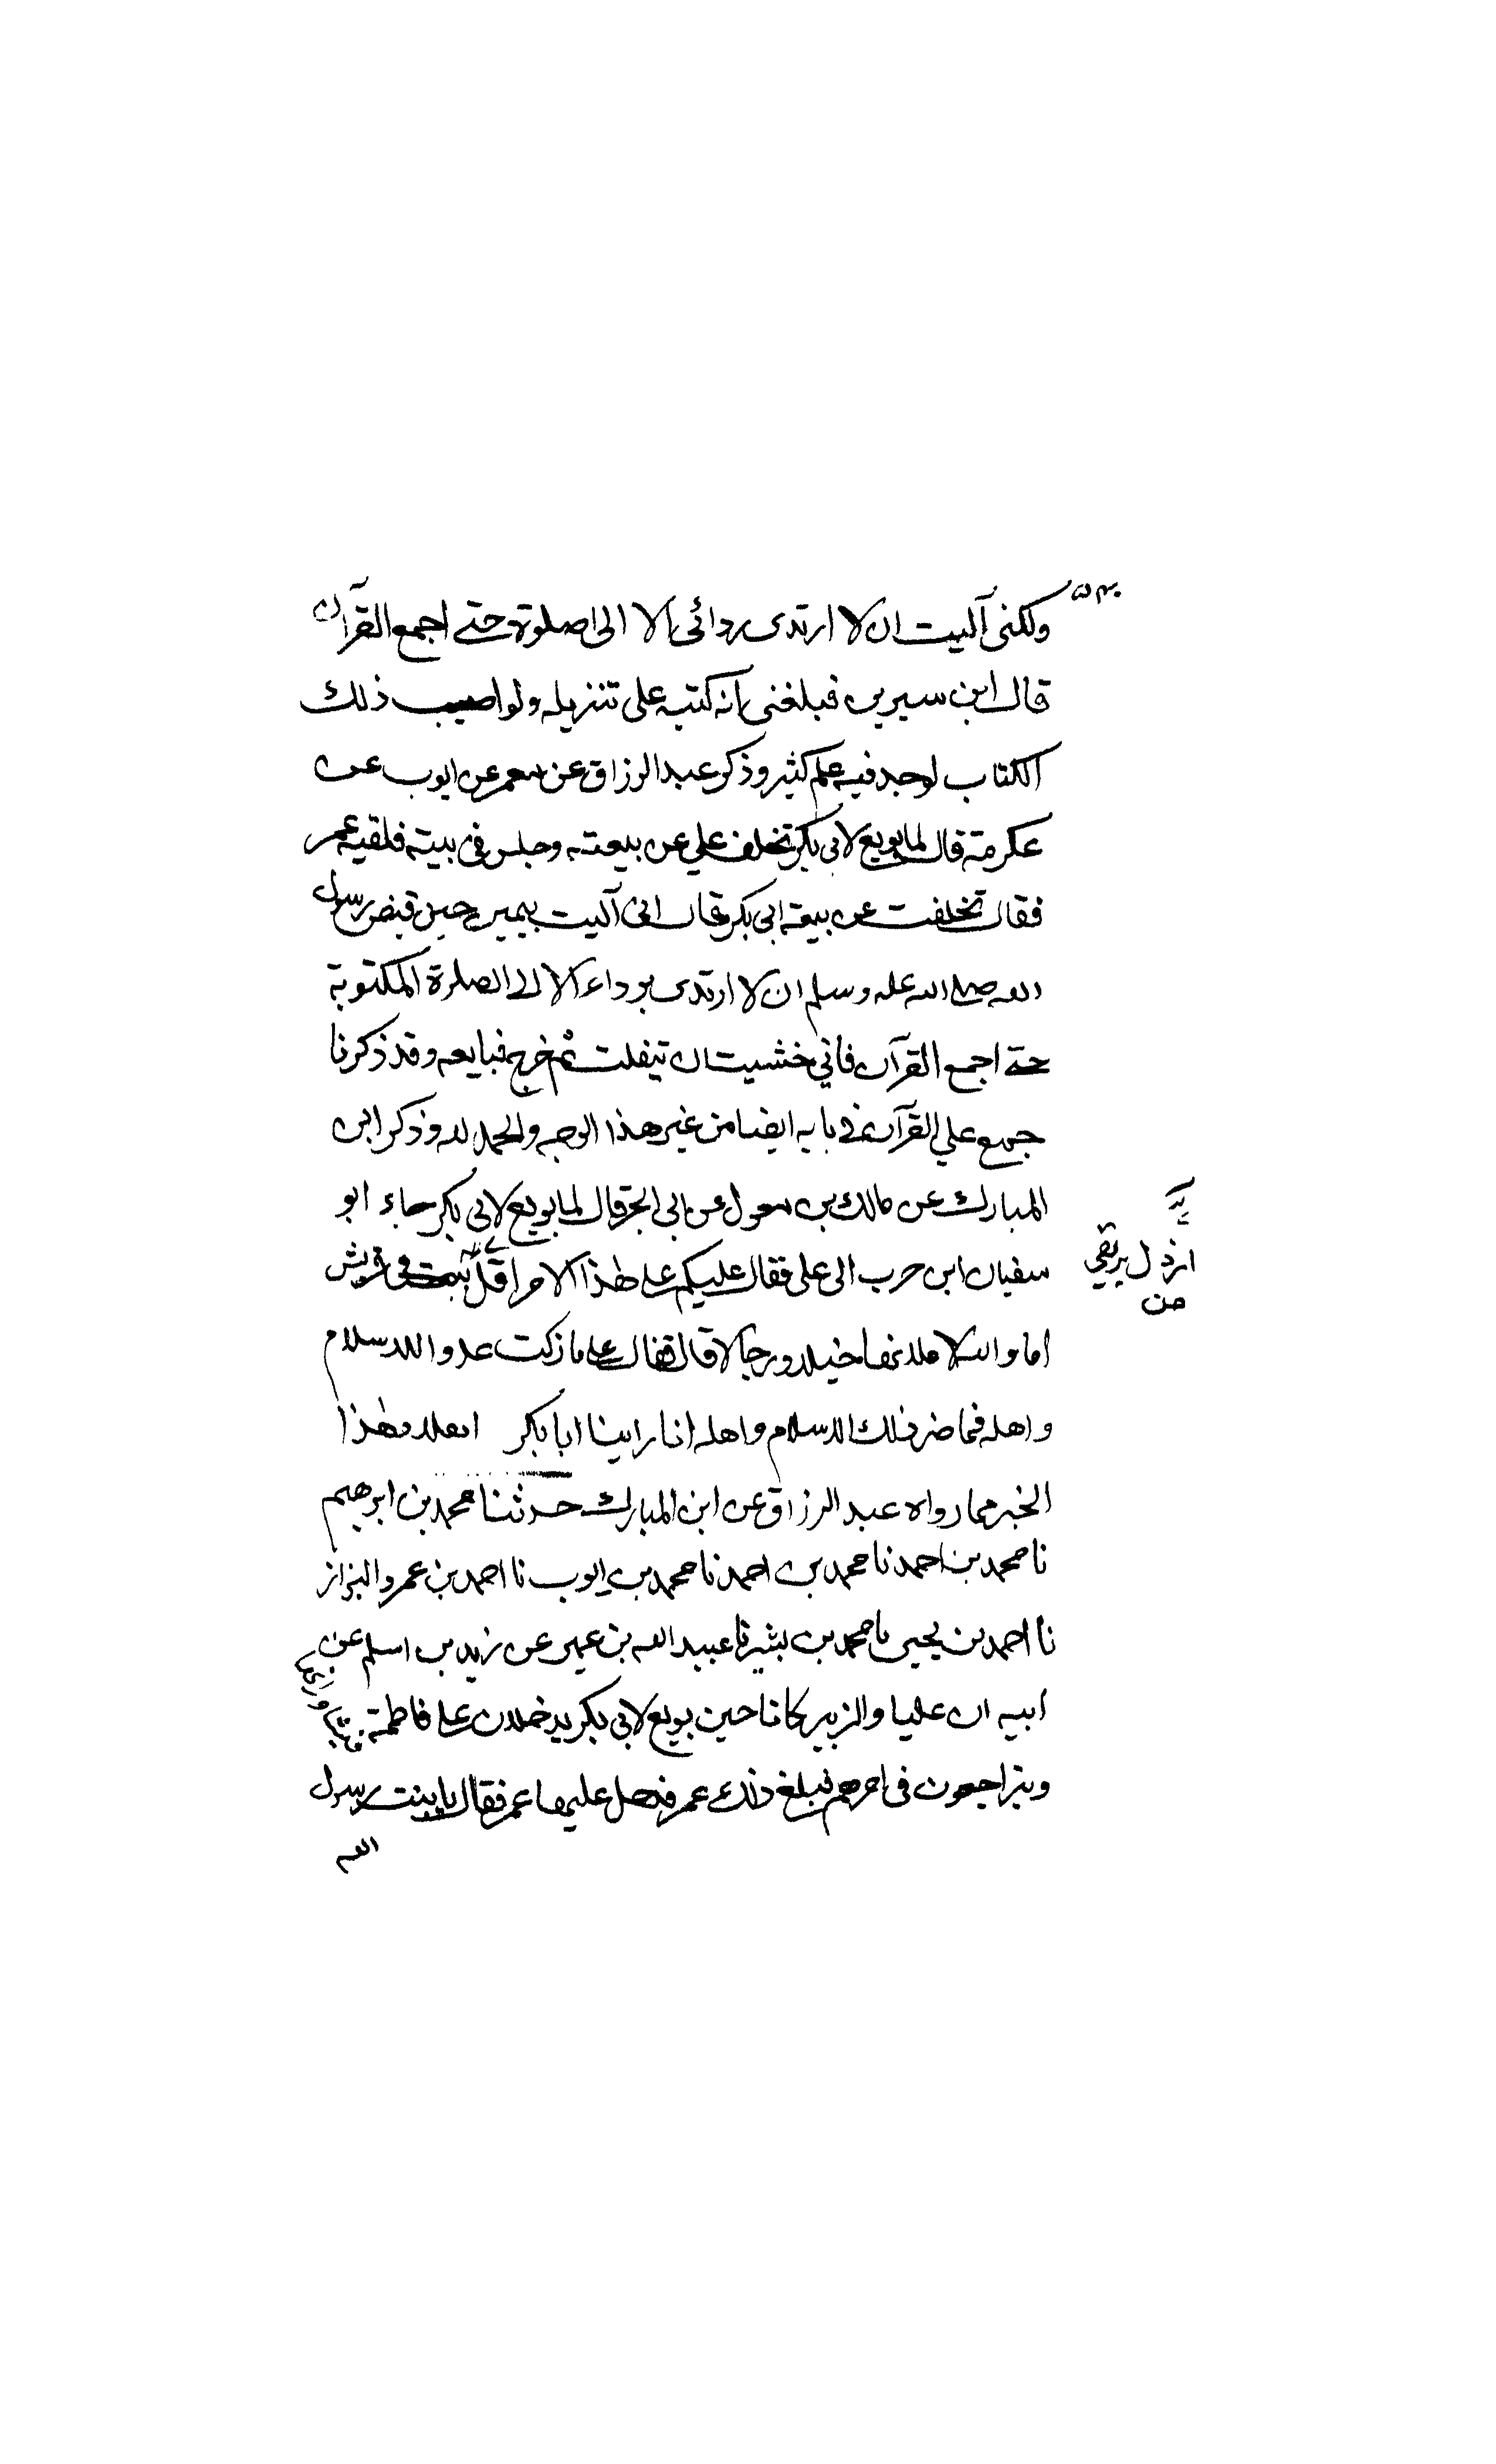 ولكنى آليت ان لا ارتدى ردائى الا الى صلوة حتى اجمع القرآن
قال ابن سيرين فبلغنى انه كتبه على تنزيله ولو اصيب ذلك
الكتاب لوجد فيه علم كثير وذكر عبد الرزاق عن معمر عن ايوب عن
عكرمة قال لما بويع لابى بكر تخلف علي عن بيعته وجلس فى بيته فلقيه عمر
فقال تخلفت عن بيعة ابى بكر فقال انى آليت بيمين حين قبض رسول
الله صلى الله عليه وسلم ان لا ارتدى برداء الا الى الصلوة المكتوبة
حتى اجمع القرآن فانى خشيت ان تيفلت ثم خرج فبايعه وقد ذكرنا
جمع علي القرآن فى بابه ايضا من غير هذا الوجه والحمد لله وذكر ابن
المبارك عن مالك بن مغول عن ابى الجر قال لما بويع لابى بكر جاء ابو
سفيان ابن حرب الى على فقال عليكم على هذا الامر اقل بيت فى قريش
اما والله لا ملانها خيلا ورجالا قال فقال على ما زلت عدوا للاسلام
واهله فما ضر ذلك الاسلام واهله انا راينا ابا بكر اهلا وهذا
الخبر مما رواه عبد الرزاق عن ابن المبارك حدثنا محمد بن ابرهيم
نا محمد بن احمد نا محمد بن احمد نا محمد بن ايوب نا احمد بن عمرو البزاز
نا احمد بن يحيى نا محمد بن بشير نا عبيد الله بن عمير عن زيد بن اسلم عن
ابيه ان عليا والزبير كانا حين بويع لابى بكر يدخلان على فاطمة
ويتراجعون فى امرهم فبلغ ذلك عمر فدخل عليها عمر فقال يا بنت رسول
الله